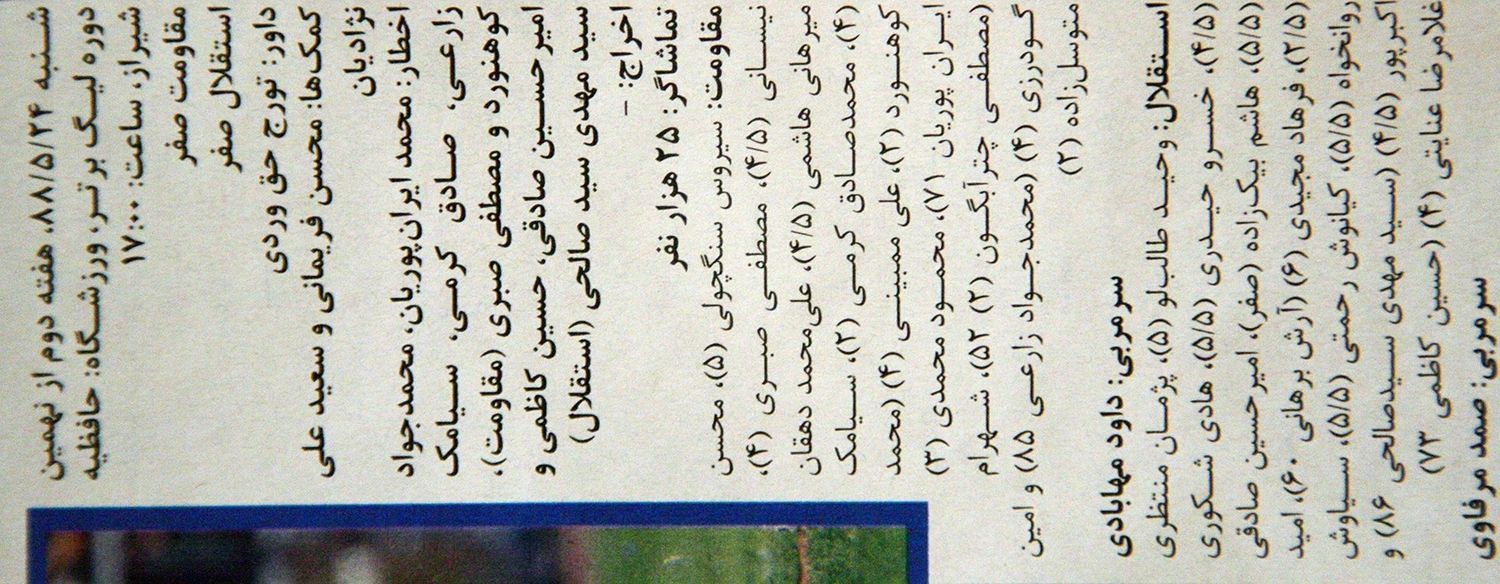 شنبه ۸۸/۵/۲۴، هفته دوم از نهمین
دوره لیگ برتر، ورزشگاه: حافظیه
شیراز، ساعت: ۱۷:۰۰
مقاومت صفر
استقلال صفر
داور: تورج حق وردی
کمک‌ها: محسن فریمانی و سعید علی
نژادیان
اخطار: محمد ایران‌پوریان، محمدجواد
زارعی، صادق کرمی، سیامک
کوهنورد و مصطفی صبری (مقاومت)،
امیرحسین صادقی، حسین کاظمی و
سید مهدی سید صالحی (استقلال)
اخراج: -
تماشاگر: ۲۵ هزار نفر
مقاومت: سیروس سنگچولی (۵)، محسن
نیسانی (۴/۵)، مصطفی صبری (۴)،
میرهانی هاشمی (۴/۵)، علی‌محمد دهقان
(۴)، محمدصادق کرمی (۲)، سیامک
کوهنورد (۲)، علی ممبینی (۴) (محمد
ایران پوریان ۷۱)، محمود محمدی (۳)
(مصطفی چترآبگون (۲) ۵۲)، شهرام
گودرزی (۴) (محمدجواد زارعی ۸۵) و امین
متوسل‌زاده (۲)
سرمربی: داود مهابادی
استقلال: وحید طالب‌لو (۵)، پژمان منتظری
(۴/۵)، خسرو حیدری (۵/۵)، هادی شکوری
(۵/۵)، هاشم بیک‌زاده (صفر)، امیرحسین صادقی
(۲/۵)، فرهاد مجیدی (۶) (آرش برهانی ۶۰)، امید
روانخواه (۵/۵)، کیانوش رحمتی (۵/۵)، سیاوش
اکبرپور (۴/۵) (سید مهدی سیدصالحی ۸۶) و
غلامرضا عنایتی (۴) (حسین کاظمی ۷۳)
سرمربی: صمد مرفاوی